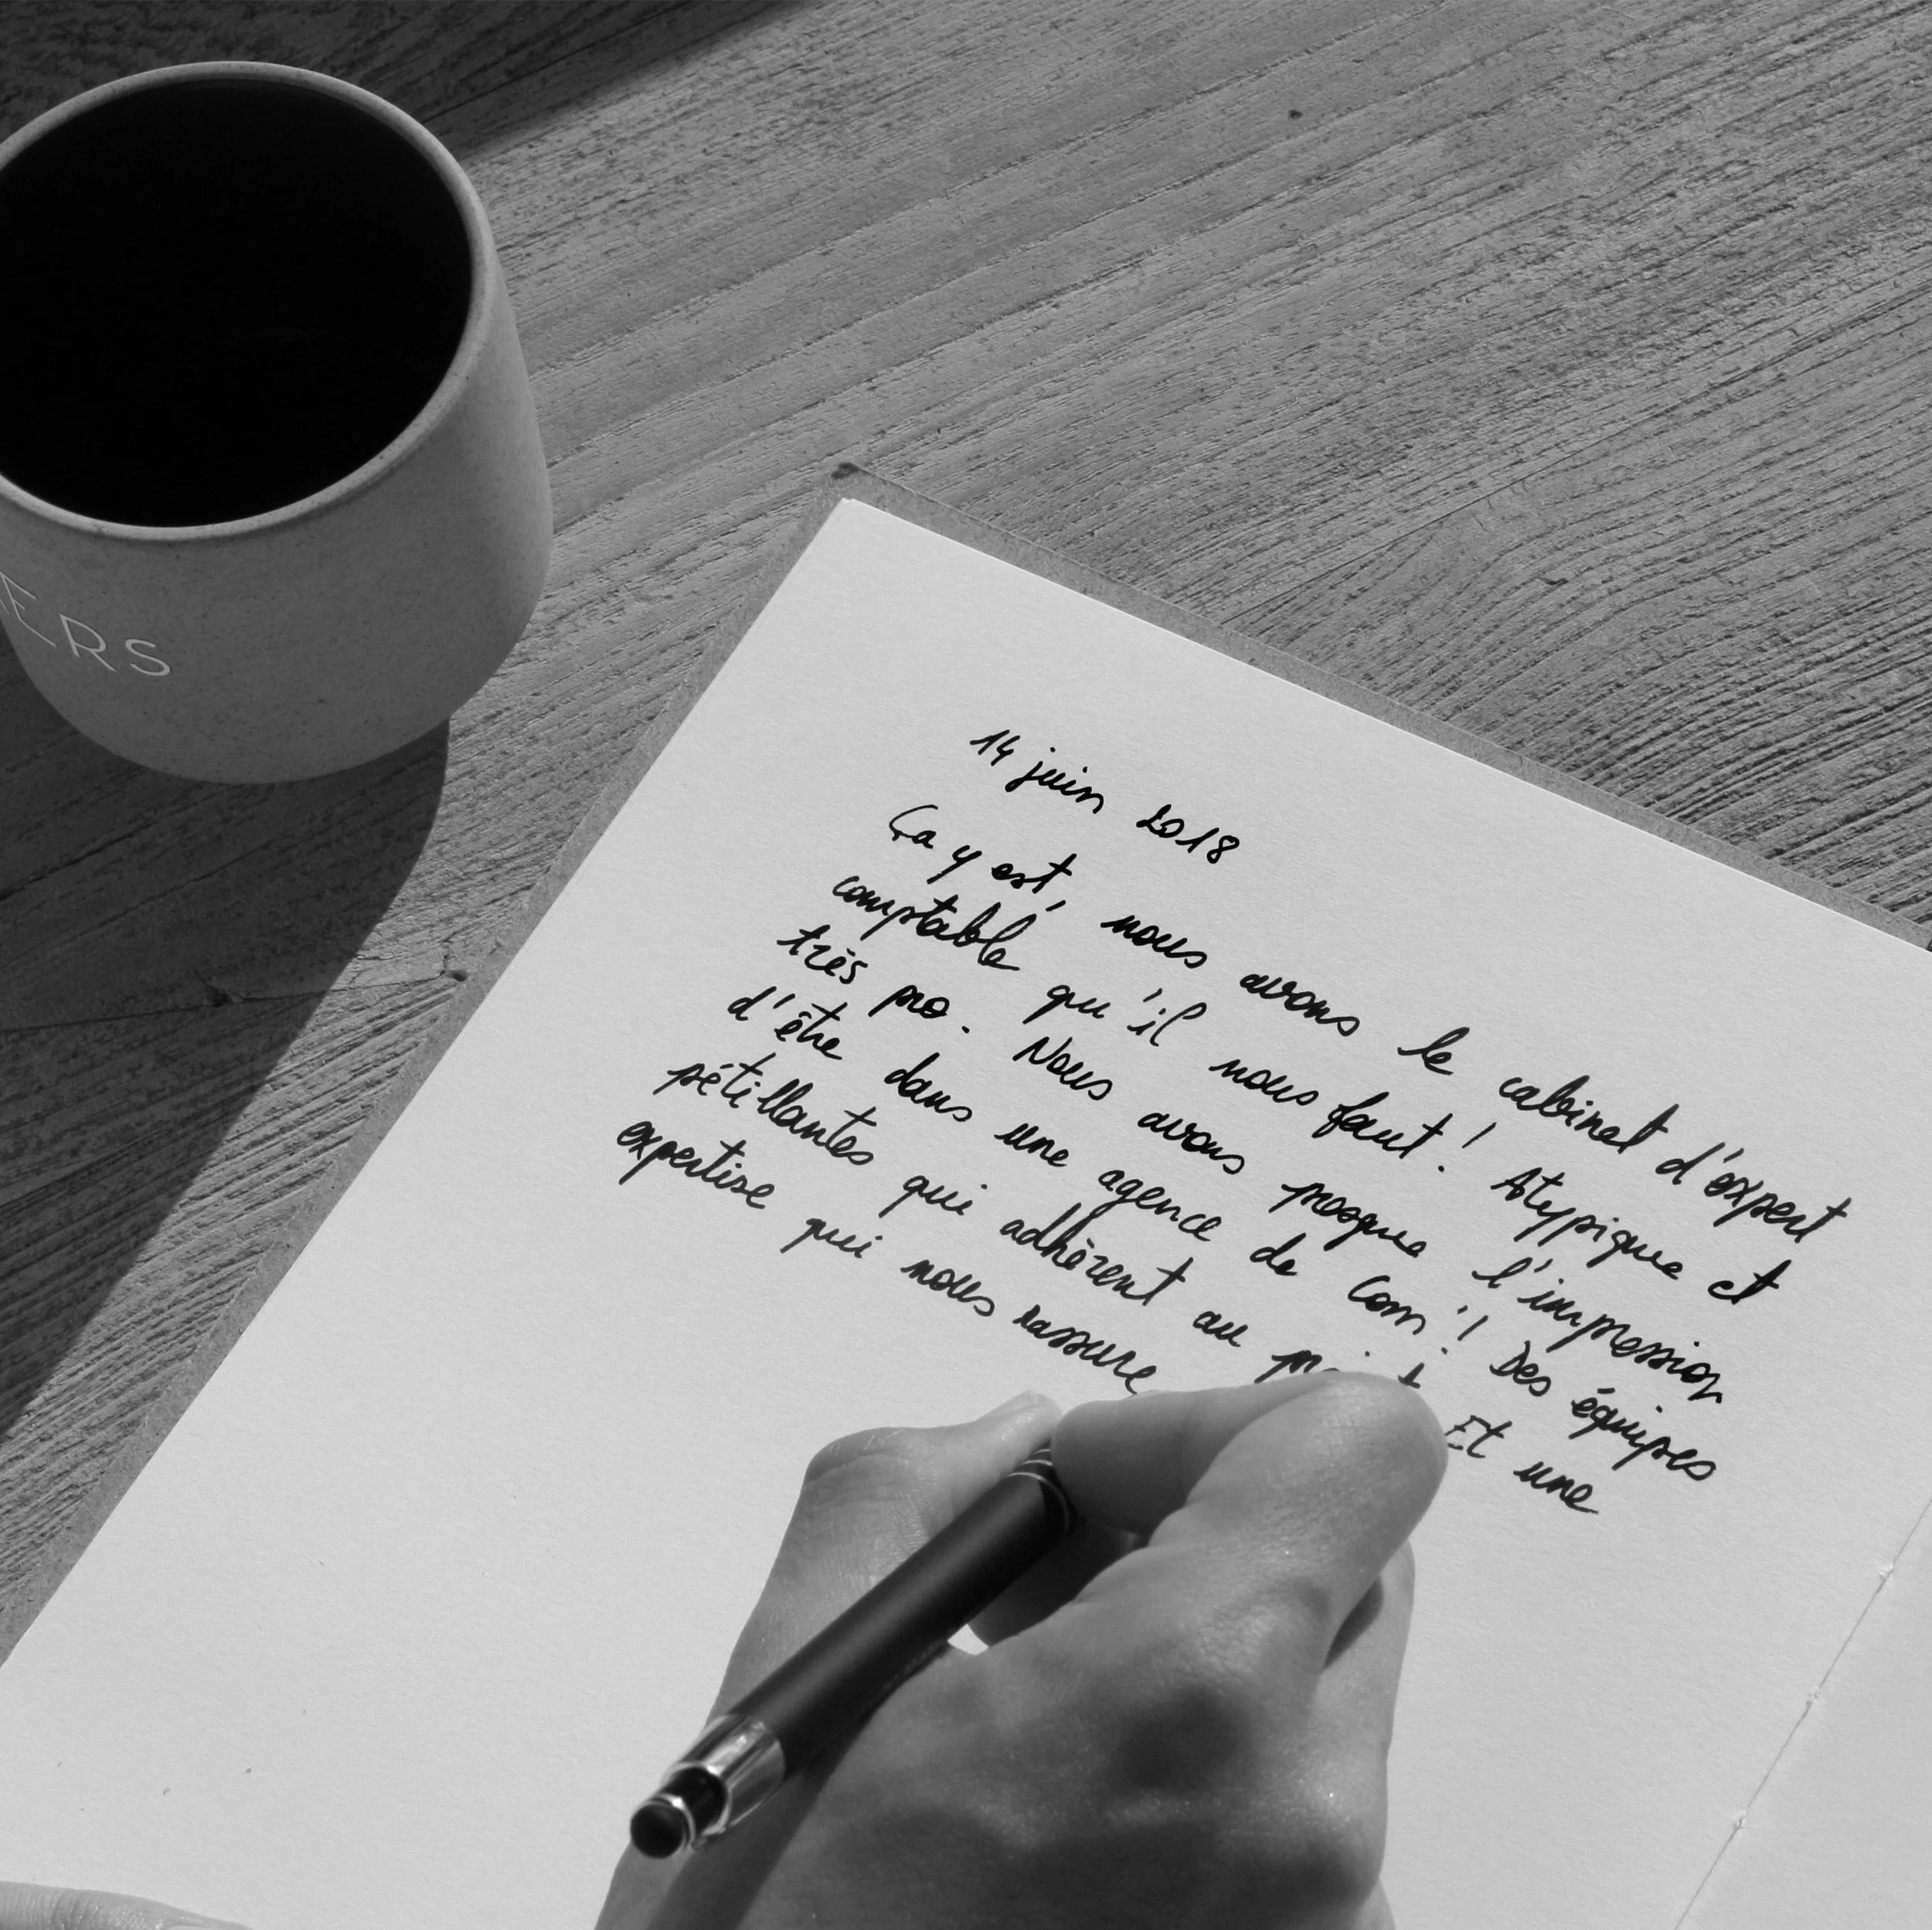 ERS
14 juin 2018
Ça y est, nous avons le cabinet d'expert
comptable qu'il nous faut ! Atypique et
très pro. Nous avons presque l'impression
d'être dans une agence de com' ! Des équipes
pétillantes qui adhèrent au Et une
expertise qui nous rassure